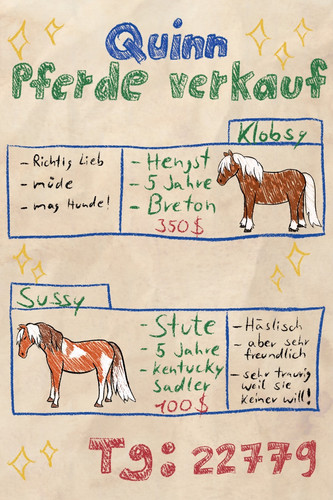 Quinn
Pferde verkauf
Klobsy
- Richtig Lieb
- müde
- mag Hunde!
- Hengst
- 5 Jahre
- Breton
350$
Sussy
- Stute
- 5 Jahre
- Kentucky
Sadler
100$
- Häslisch
- aber sehr
freundlich
- sehr traurig
weil sie
keiner will!
Tg: 22779